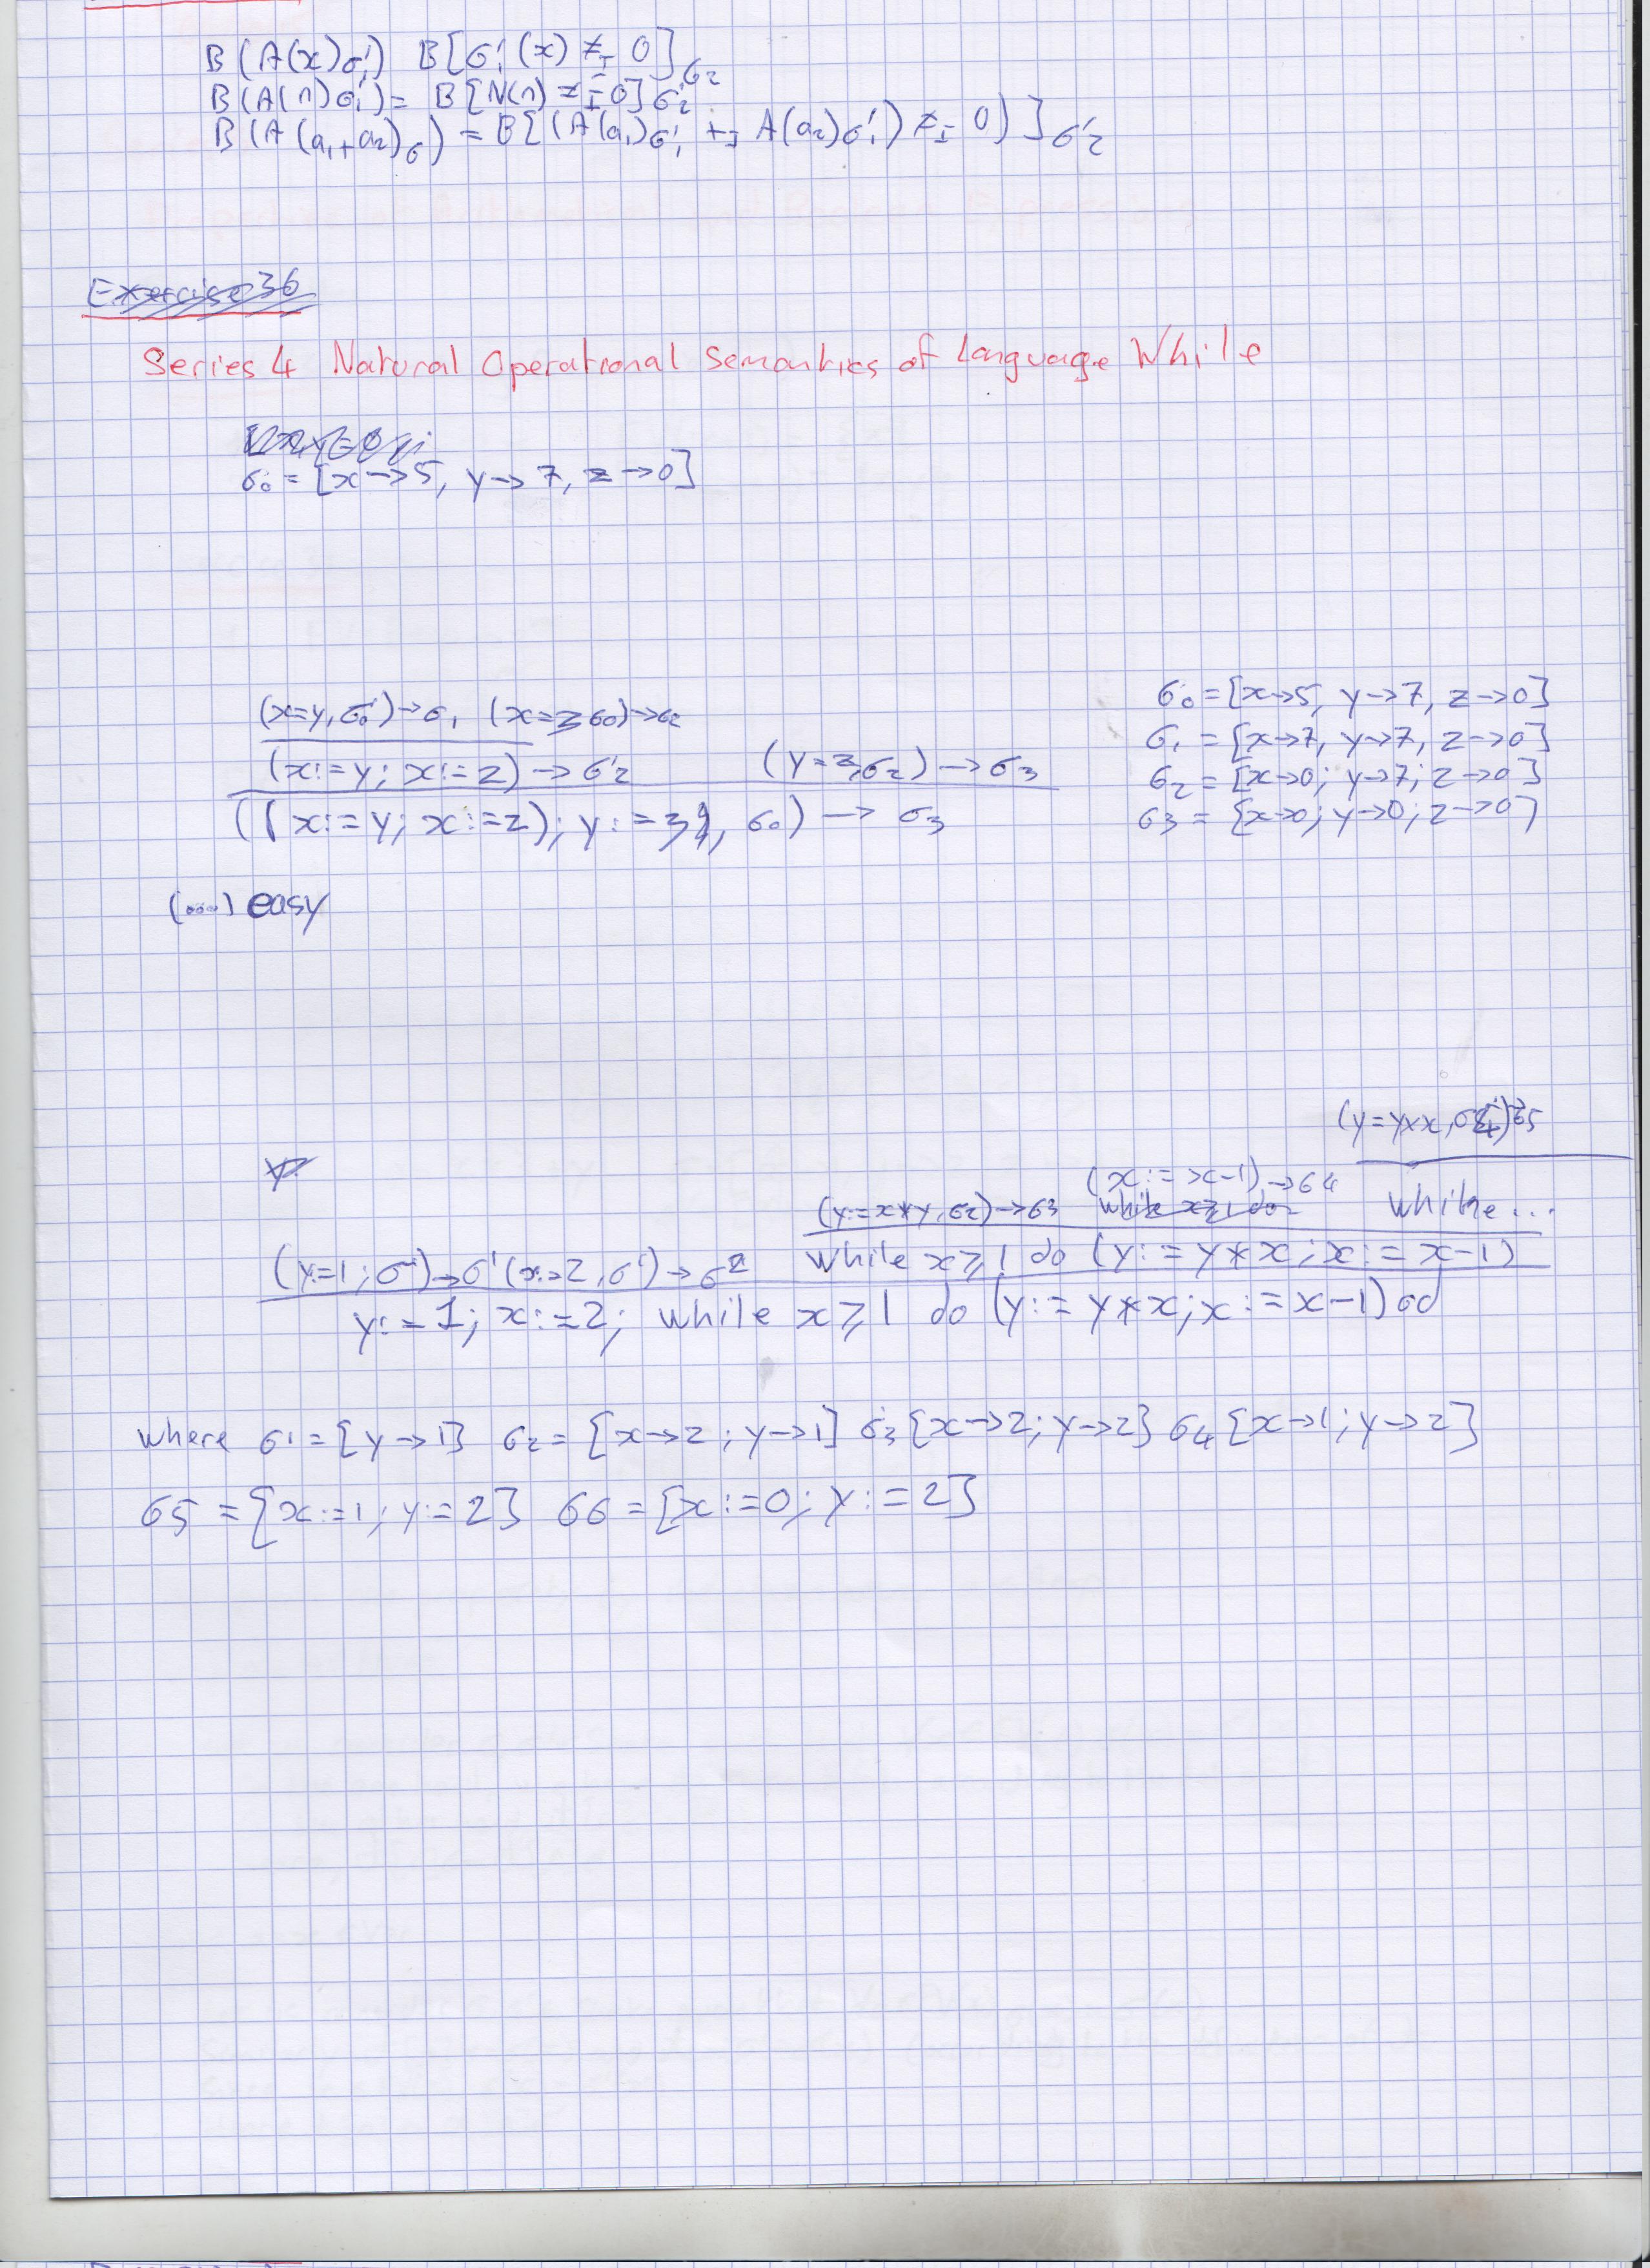 B(A(x)σ₁) B[σ₁(x) ≠_I 0]σ₂
B(A(n)σ₁) = B[N(n) ≠_I 0]σ₂
B(A(a₁+a₂)σ) = B[(A(a₁)σ₁ +_I A(a₂)σ₁) ≠_I 0)]σ₂
Exercise 36
Series 4 Natural Operational Semantics of Language While
σ₀ = [x→5, y→7, z→0]
(x=y, σ₀)→σ₁ (x=z σ₀)→σ₂
(x:=y; x:=z) → σ₂ (y=z, σ₂) → σ₃
((x:=y; x:=z); y:=z, σ₀) → σ₃
σ₀ = [x→5, y→7, z→0]
σ₁ = [x→7, y→7, z→0]
σ₂ = [x→0; y→7; z→0]
σ₃ = [x→0; y→0; z→0)
(....) easy
(y=y×x, σ₄)→σ5
(x:=x-1)→σ4
(y:=x*y, σ2)→σ3 while x≥1 do while...
(y=1; σ)→σ' (x:=2, σ')→σ² while x≥1 do (y:=y*x; x:=x-1)
y:=1; x:=2; while x≥1 do (y:=y*x; x:=x-1) od
where σ1=[y→1] σ2=[x→2; y→1] σ3[x→2; y→2] σ4[x→1; y→2]
σ5=[x:=1; y:=2] σ6=[x:=0; y:=2]